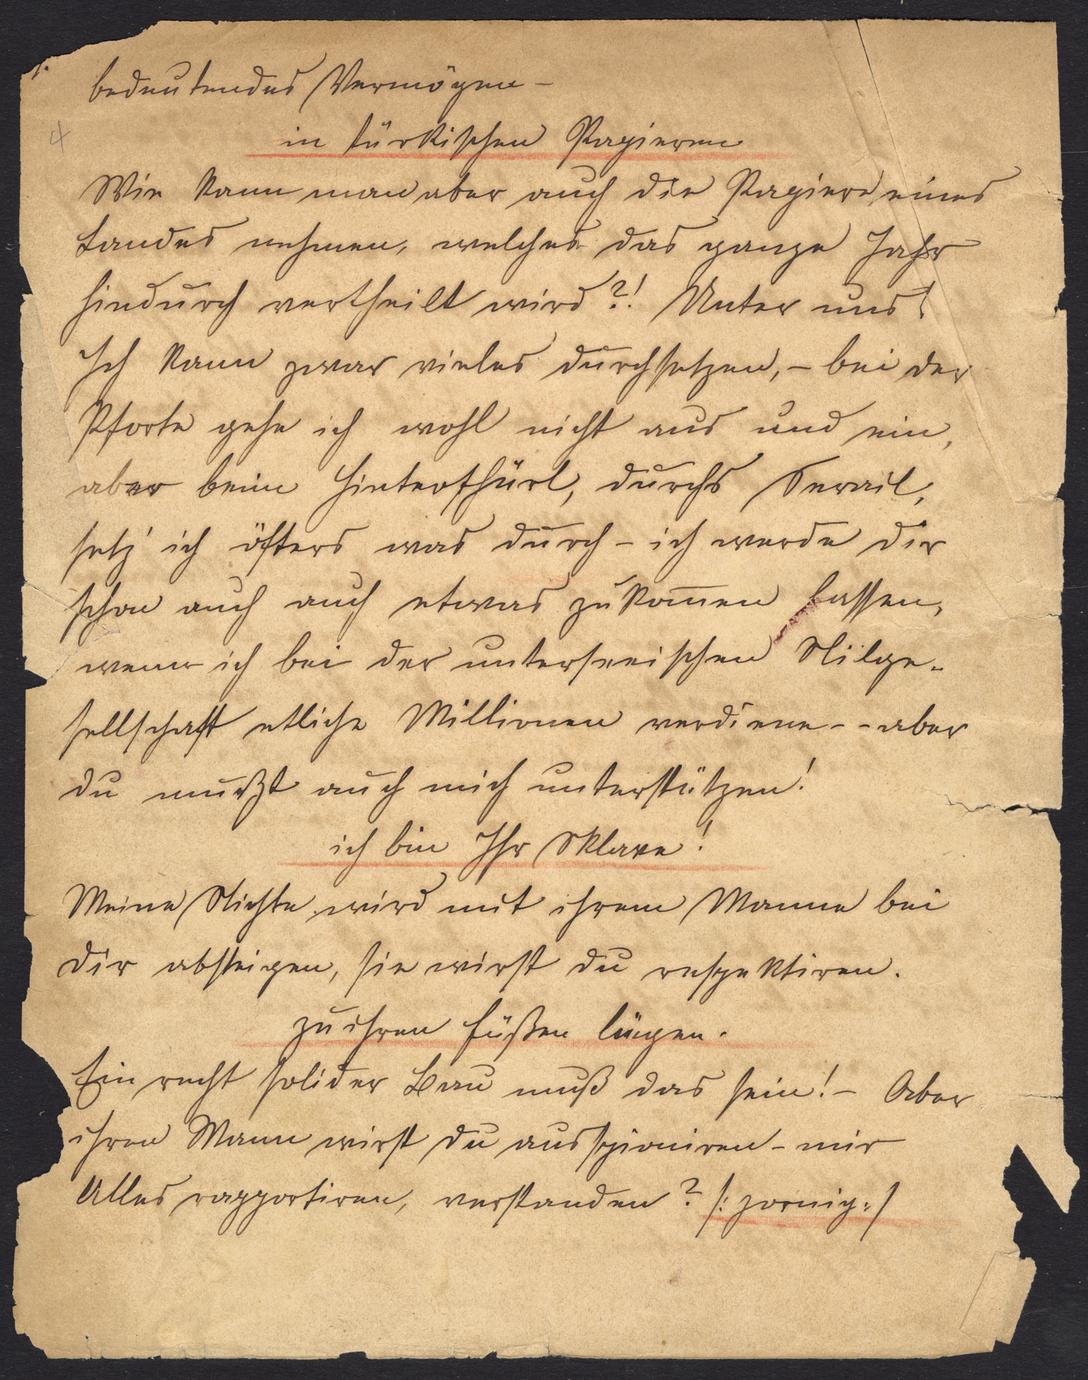 bedeutendes Vermögen –
4
in türkischen Papieren
Wie kann man aber auch die Papiere eines
Landes nehmen, welches das ganze Jahr
hindurch vertheilt wird?! Unter uns!
Ich kann zwar vieles durchsetzen, – bei der
Pforte gehe ich wohl nicht aus und ein,
aber beim Hinterthürl, durchs Serail,
setz' ich öfters was durch – ich werde dir
schon auch auch etwas zukom̄en lassen,
wenn ich bei der unterseeischen Nilge-
sellschaft etliche Millionen verdiene - - aber
du mußt auch mich unterstützen!
ich bin Ihr Sklave!
Meine Nichte wird mit ihrem Manne bei
dir absteigen, sie wirst du respektiren.
zu ihren Füßen liegen.
Ein recht solider Bau muß das sein! – Aber
ihren Mann wirst du ausspioniren – mir
Alles rapportiren, verstanden? /: zornig :/